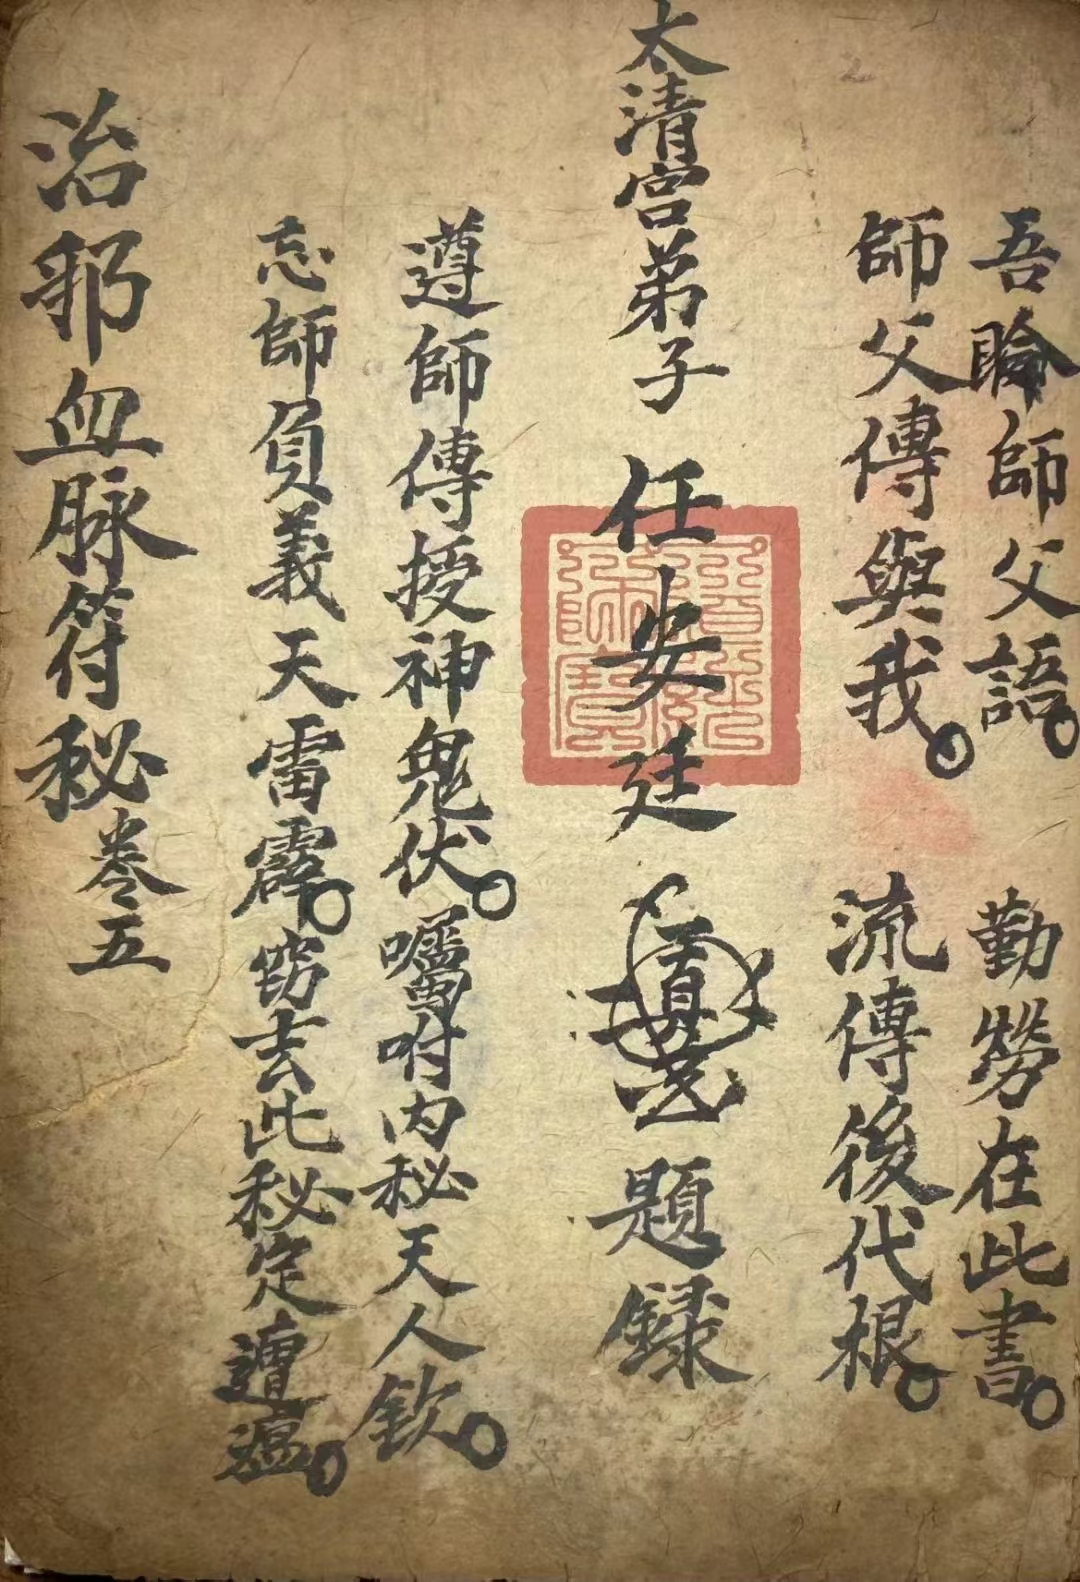 吾聆師父語。勤勞在此書。
師父傳與我。流傳後代根。
太清宮弟子任安廷題録
遵師傳授神鬼伏。囑咐内秘天人欽。
忘師負義天雷霹。窃去此秘定遭瘟。
治邪血脉符秘卷五